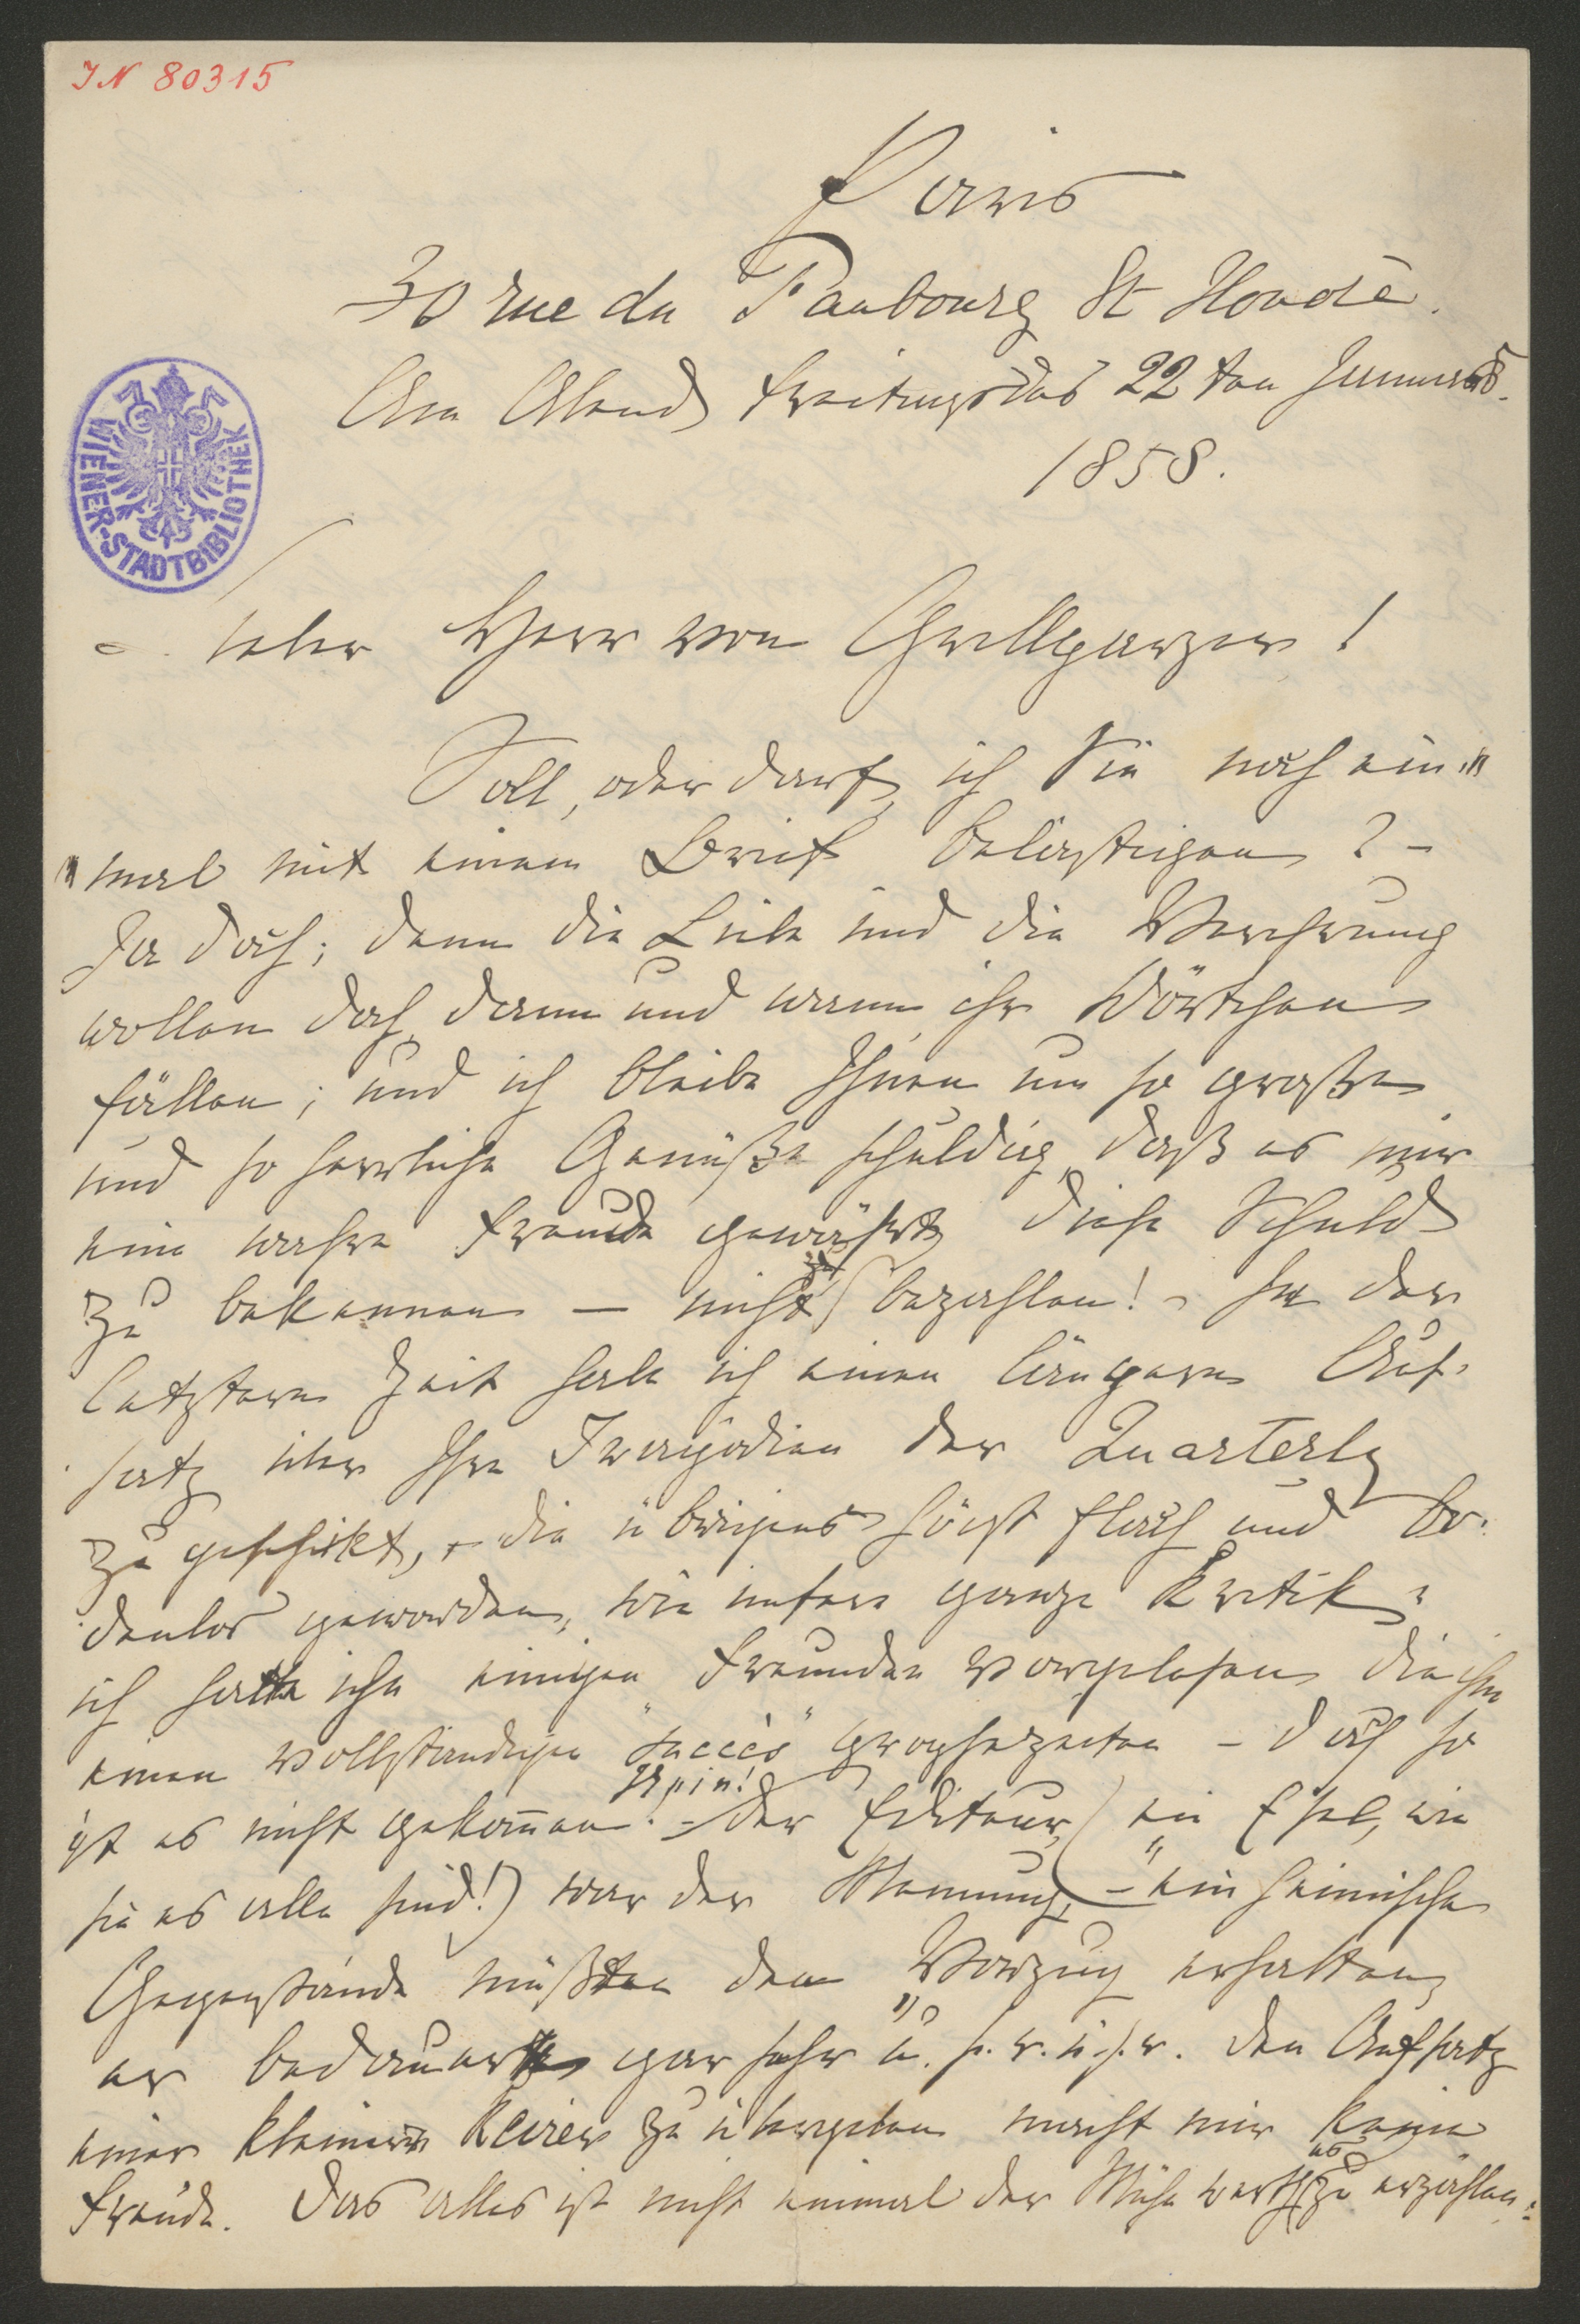 IN 80315
Paris
30 rue du Faubourg St Honoré.
Am Abend Freitags des 22ten Januars.
1858.
WIENER-STADTBIBLIOTHEK
lieber Herr von Grillparzer!
Soll, oder darf, ich Sie noch ein„
„mal mit einem Brief belästigen? –
Ja doch; denn die Liebe und die Verehrung
wollen doch dann und wann ihr Wörtchen
fällen; und ich bleibe Ihnen um so große
und so herrliche Genüße schuldig, daß es mir
eine wahre Freude gewährt diese Schuld
zu bekennen – nicht zu bezahlen! – In der
letztern Zeit habe ich einen längern Auf-
satz über Ihre Tragödien der Quarterly
zu geschikt, – die übrigens höchst flach und bo-
denlos geworden, wie unsere ganze Kritik –
ich hatte ihn einigen Freunden vorgelesen die ihm
einen vollständigen "succès" prophezeiten – doch so
ist es nicht gekom̄en. – Der Editeur, (ein Esel, wie
sie es alle sind!) war der Meinung, – "einheimische
Gegenstände müßten den Vorzug erhalten"
er bedauerte gar sehr u. s. w. u. s. w. Den Aufsatz
einer kleinern Review zu übergeben macht mir keine
Freude. Das alles ist nicht einmal der Mühe werth es zu erzählen: